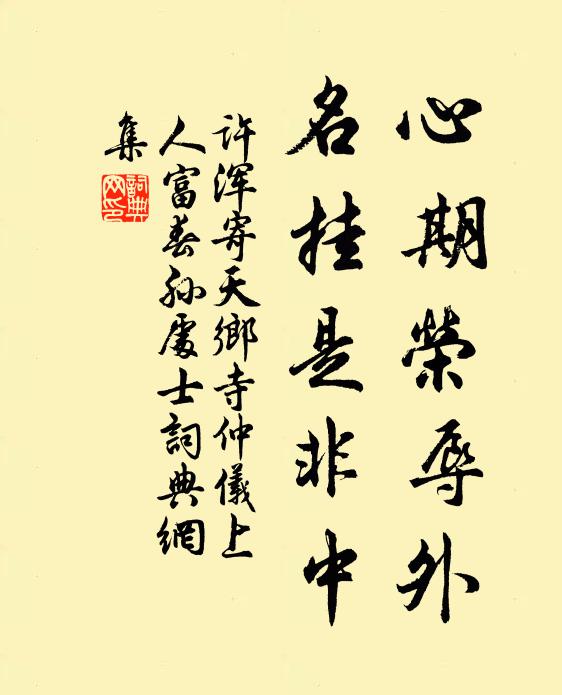 心期榮辱外
名挂是非中
許渾寄天鄉寺仲儀上
人富春孫處士詞典網
集
詞典
网印